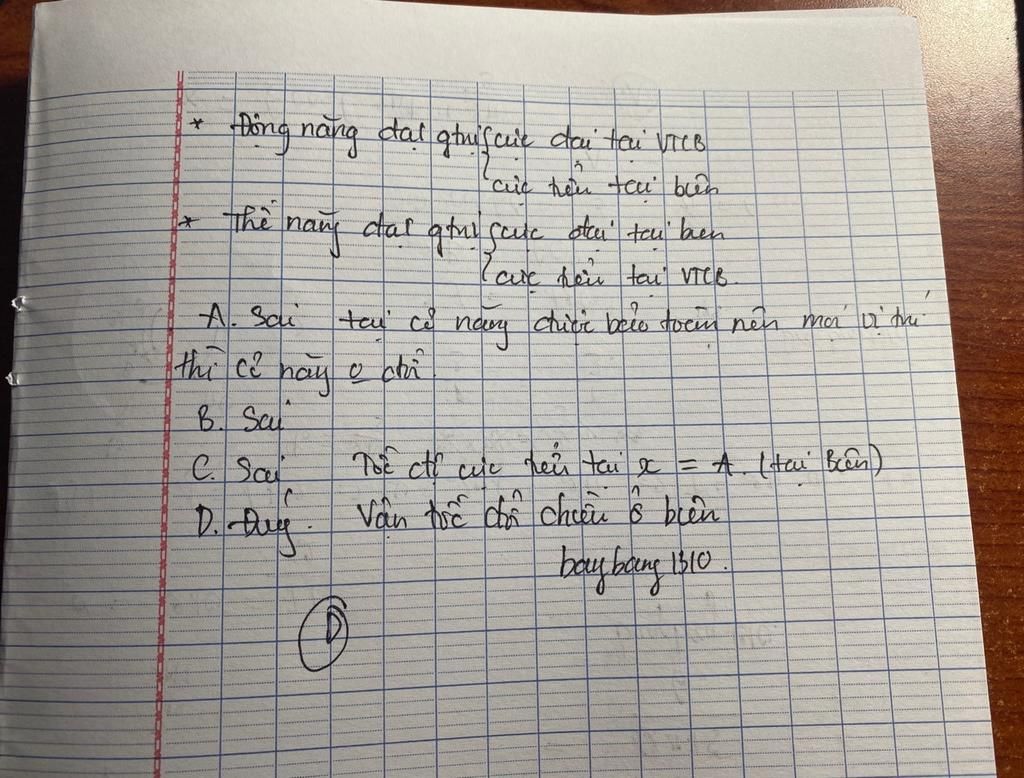 * Động năng đạt gtrị { cực đại tại VTCB
{ cực tiểu tại biên
* Thế năng đạt gtrị { cực đại tại biên
{ cực tiểu tại VTCB.
A. Sai tại cơ năng được bảo toàn nên mọi vị trí
thì cơ năng o đổi
B. Sai
C. Sai Tốc độ cực tiểu tại x = A. (tại Biên)
D. Đúng. Vận tốc đổi chiều ở biên
baybang1310.
D